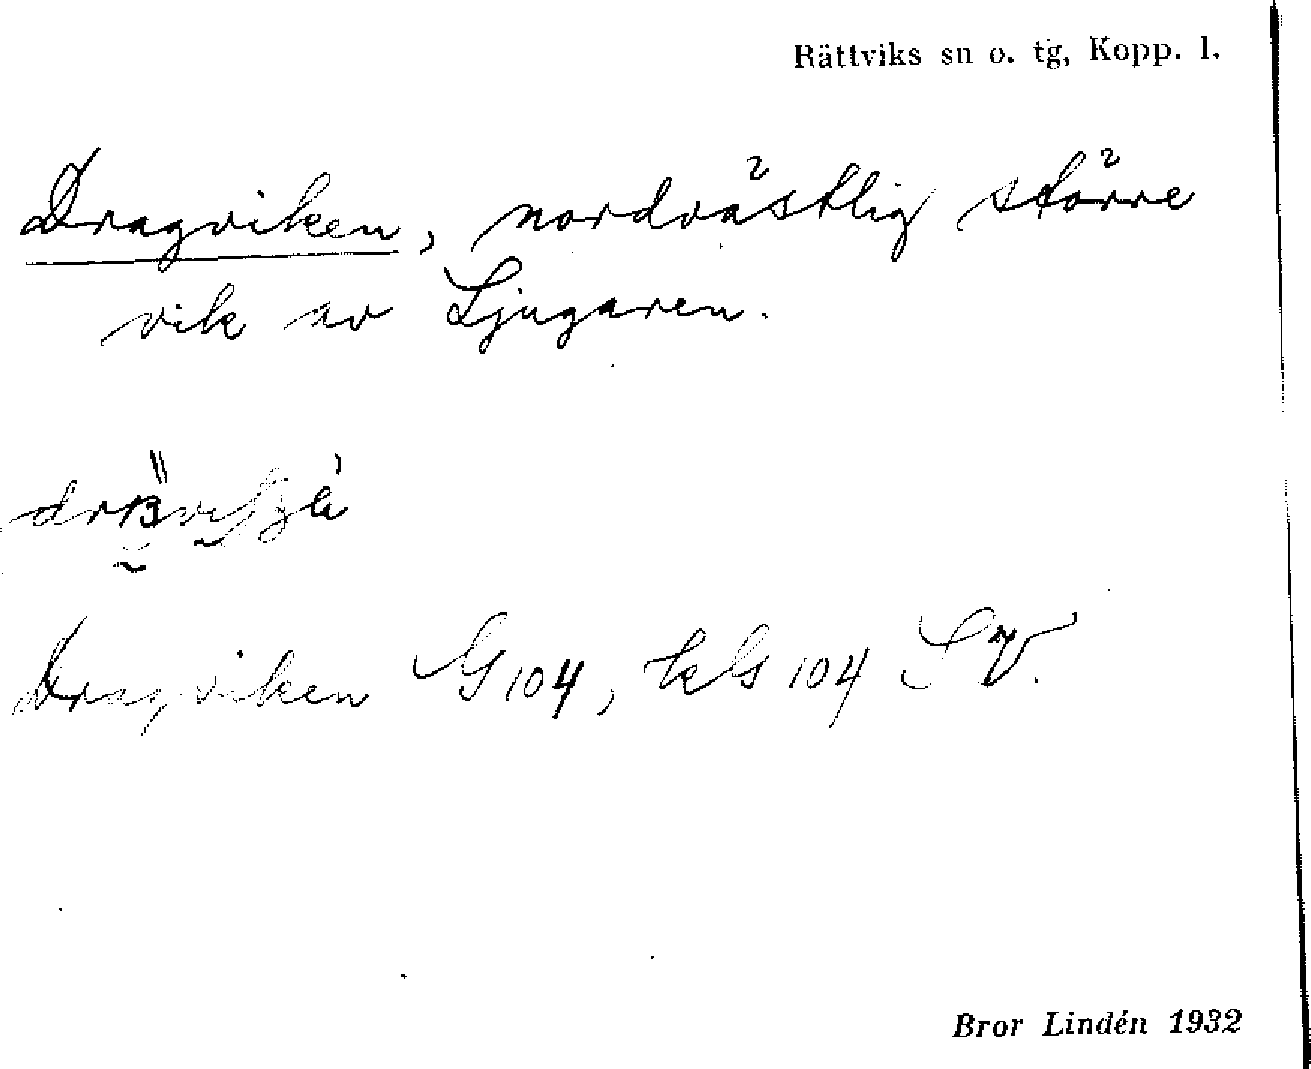 Rättviks sn o. tg, Kopp. l.
Dragviken, nordvästlig större
vik av Ljugaren.
Dragviken G 104, kG 104 SV.
Bror Lindén 1932